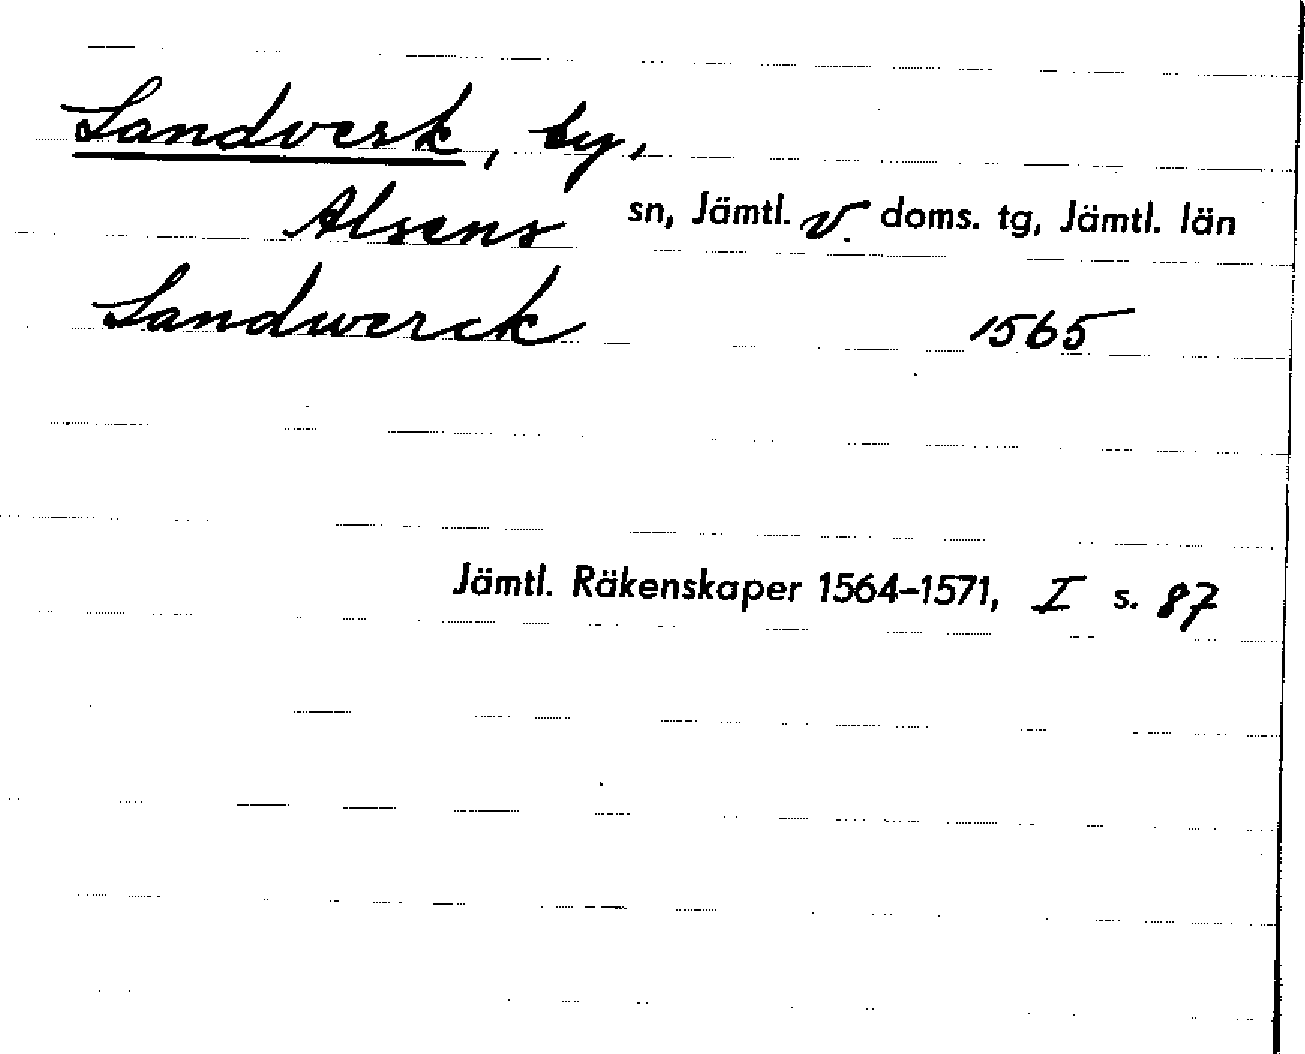 Landverk, by,
Alsens sn, Jämtl. v. doms. tg, Jämtl. län
Landwerck 1565
Jämtl. Räkenskaper 1564-1571, I s. 87